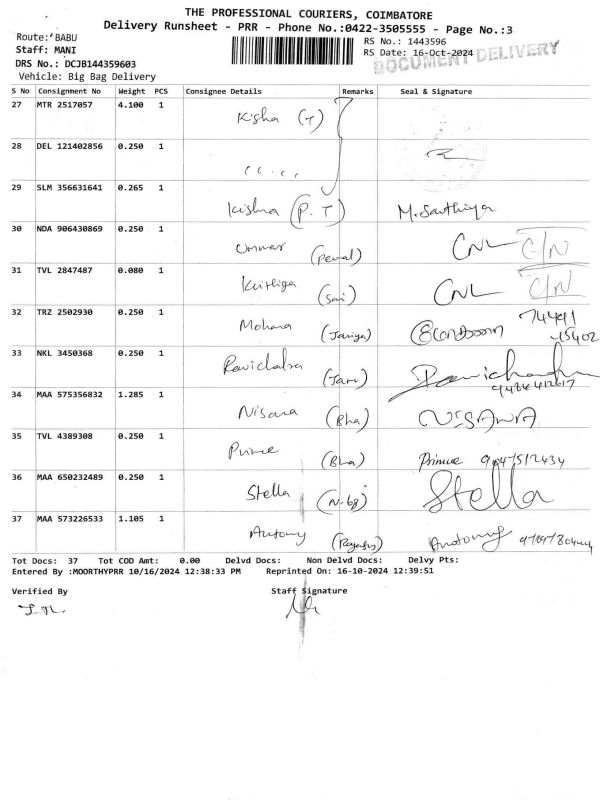 THE PROFESSIONAL COURIERS, COIMBATORE
Delivery Runsheet - PRR - Phone No.:0422-3505555 - Page No.:3
Route: BABU
RS No.: 1443596
Staff: MANI
RS Date: 16-Oct-2024
DOCUMENT DELIVERY
DRS No.: DCJB144359603
Vehicle: Big Bag Delivery
S No Consignment No Weight PCS Consignee Details Remarks Seal & Signature
27 MTR 2517057 4.100 1 Kisha (T)
28 DEL 121402856 0.250 1
29 SLM 356631641 0.265 1 Kishna (P.T) M. Santhiya
30 NDA 906430869 0.250 1 Ummar CNL C/N
31 TVL 2847487 0.080 1 (Sai) CNL C/N
32 TRZ 2502930 0.250 1 Mohana
33 NKL 3450368 0.250 1
34 MAA 575356832 1.285 1 Nisana (Bha)
35 TVL 4389308 0.250 1 Prince (Bha) Prince
36 MAA 650232489 0.250 1 Stella Stella
37 MAA 573226533 1.105 1 Antony
Tot Docs: 37 Tot COD Amt: 0.00 Delvd Docs: Non Delvd Docs: Delvy Pts:
Entered By :MOORTHYPRR 10/16/2024 12:38:33 PM Reprinted On: 16-10-2024 12:39:51
Verified By Staff Signature